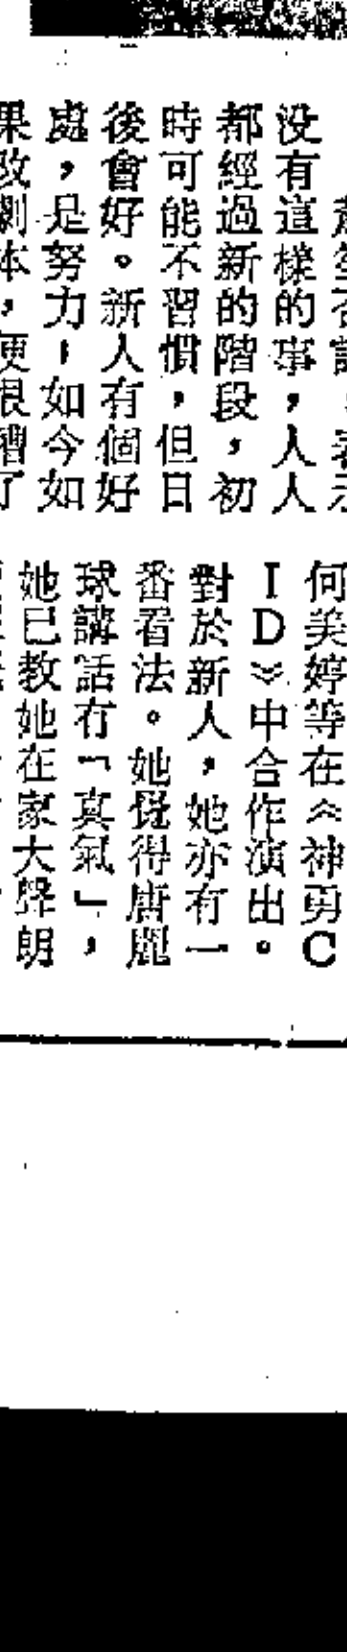 没有這樣的事，人人
都經過新的階段，初
時可能不習慣，但日
後會好。新人有個好
處，是努力，如今如
果改劇本，便很糟了
何美婷等在《神勇C
ID》中合作演出。
對於新人，她亦有一
番看法。她覺得唐麗
球講話有「真氣」，
她已教她在家大聲朗